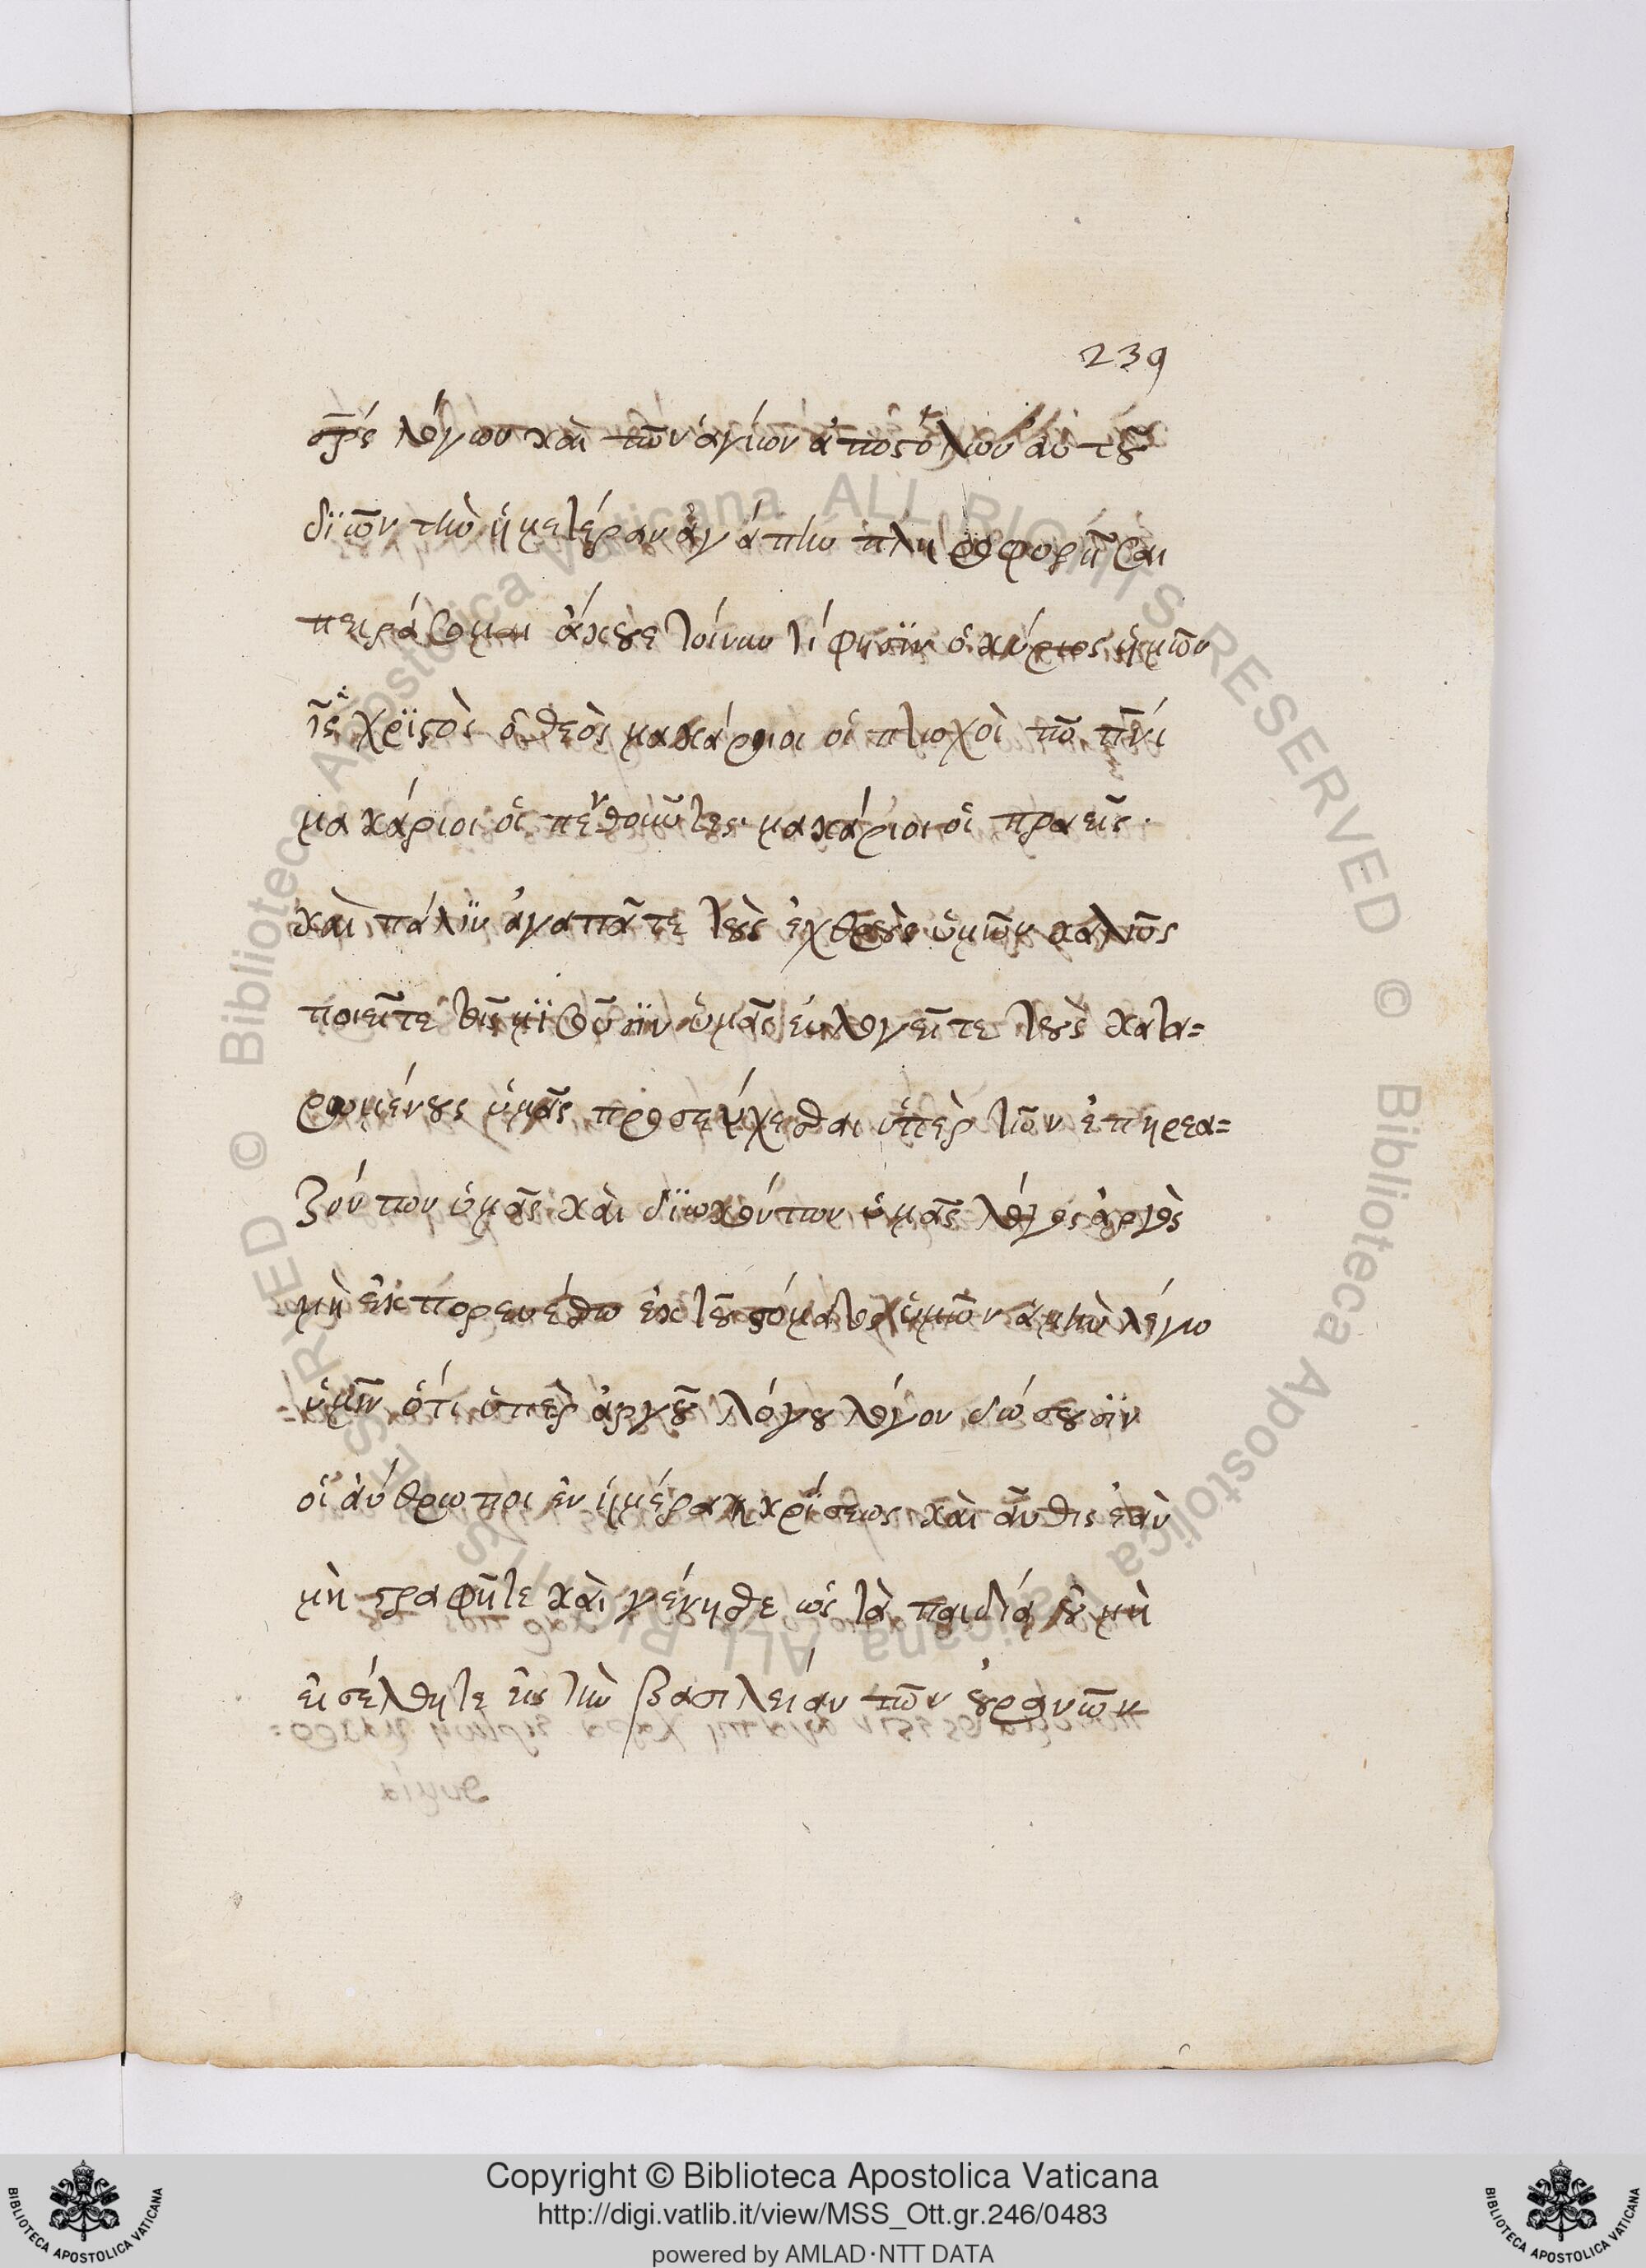 239
σρ̅ς λόγων καὶ τῶν ἁγίων ἀποστόλων αὐτοῦ
δϊῶν τὴν ἡμετέραν ἀγάπην πληροφορῆσαι
πειράσομαι ἀκούε τοίνυν τί φησὶν ὁ κύριος ἡμῶν
ι̅ς χρϊστὸς ὁ θεὸς μακάριοι οἱ πτωχοὶ τῶ πν̅ι
μακάριοι οἱ πενθοῦντες· μακάριοι οἱ πραεῖς·
καὶ πάλϊν ἀγαπᾶτε τοὺς ἐχθροὺς ὑμῶν καλῶς
ποιεῖτε τοῖς μϊσοῦσϊν ὑμᾶς εὐλογεῖτε τοὺς κατα=
ρωμένους ὑμᾶς προσεύχεσθαι ὑπὲρ τῶν ἐπηρεα=
ζόντων ὑμᾶς καὶ δϊωκόντων ὑμᾶς λόγος ἀργὸς
μὴ ἐκπορευέσθω ἐκ τοῦ στόματος ὑμῶν ἀμὴν λέγω
ὑμῖν ὅτι ὑπὲρ ἀργοῦ λόγου λόγον δώσουσϊν
οἱ ἄνθρωποι ἐν ἡμέρα κρίσεως καὶ αὖθις ἐὰν
μὴ στραφῆτε καὶ γένησθε ὡς τὰ παιδία οὐ μὴ
εἰσέλθητε εἰς τὴν βασιλείαν τῶν οὐρανῶν
© Biblioteca Apostolica Vaticana ALL RIGHTS RESERVED
© Biblioteca Apostolica Vaticana ALL RIGHTS RESERVED
BIBLIOTECA APOSTOLICA VATICANA
Copyright © Biblioteca Apostolica Vaticana
http://digi.vatlib.it/view/MSS_Ott.gr.246/0483
powered by AMLAD·NTT DATA
BIBLIOTECA APOSTOLICA VATICANA